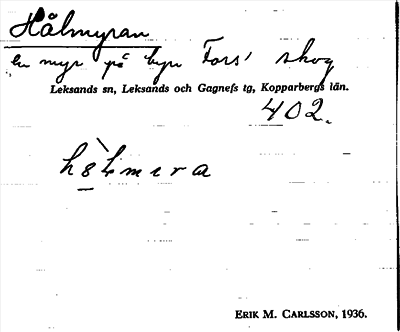 Hålmyran
En myr på byn Fors' skog
Leksands sn, Leksands och Gagnefs tg, Kopparbergs län.
402.
ERIK M. CARLSSON, 1936.